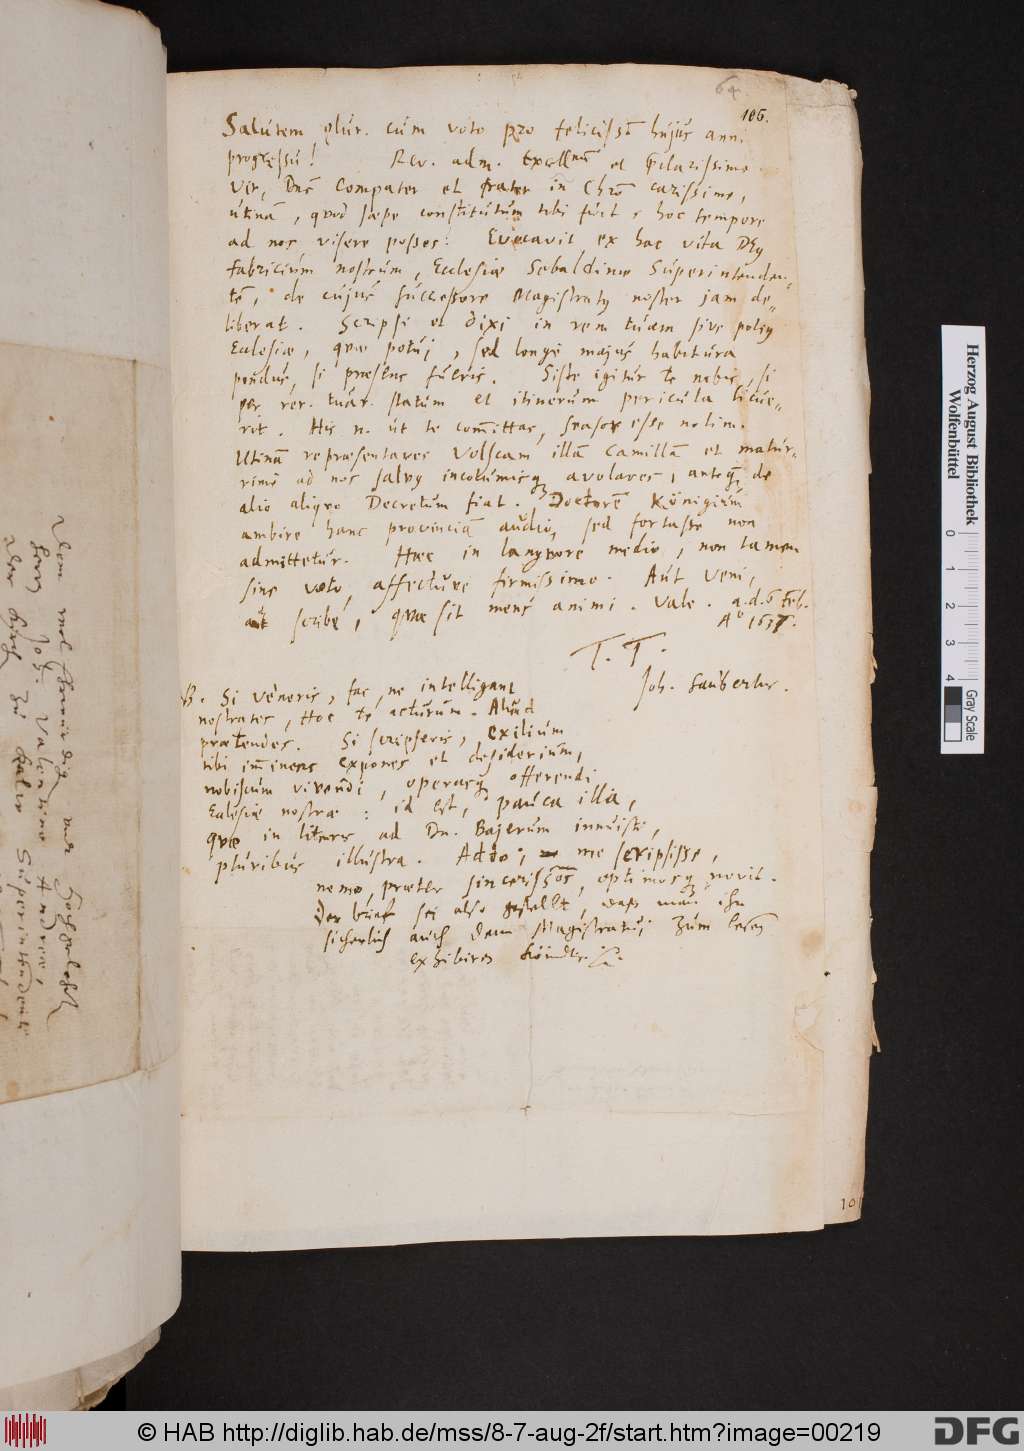 64
106.
Salutem plur. cum voto pro felicissō hujus anni
progressu! Rev. adm. Excellme et clarissime
Vir, Dne Compater et frater in Chro carissime,
utinā, quod saepe constitutum tibi fuit, hoc tempore
ad nos visere posses: Evocavit ex hac vita Deus
Fabricium nostrum, Ecclesiae Sebaldinae Superintenden-
tē, de cujus successore Magistratus noster jam de-
liberat. Scripsi et dixi in rem tuam sive potius
Ecclesiae, quae potui, sed longè majus habitura
pondus, si praesens fueris. Siste igitur te nobis, si
per rer. tuar. statum et itinerum pericula licue-
rit. His n. ut te comittas, suasor esse nolim.
Utinā repraesentares Volscam illam Camillam et matur-
rimè ad nos salvus incolumisq avolares, anteq de
alio aliquo Decretum fiat. Doctorē Königium
ambire hanc provinciā audio, sed fortasse non
admittetur. Haec in languore medio, non tamen
sine voto, affectuve firmissimo. Aut veni,
aut scribe, quae sit mens animi. Vale. a.d. 6 Feb.
Ao 1637.
T. T.
Joh. Saubertus.
Si veneris, fac, ne intelligant
nostrates, Hoc te acturum. Aliud
praetendes. Si scripseris, exilium
tibi iminens expones et desiderium,
nobiscum vivendi, operasq offerendi
Ecclesiae nostrae: id est, pauca illa,
quae in literis ad Dn. Bajerum innuisti,
pluribus illustra. Addo; me scripsisse,
nemo, praeter sincerissos, optimosq novit.
Der brief sei also gestellt, das man ihn
sicherlich auch dem Magistratui zum lesen
exhibiren
Dem
Herrn Joh. Valentino Andreae,
Superintendenten
10
Herzog August Bibliothek
Wolfenbüttel
0 1 2 3 4
Gray Scale
© HAB http://diglib.hab.de/mss/8-7-aug-2f/start.htm?image=00219
DFG